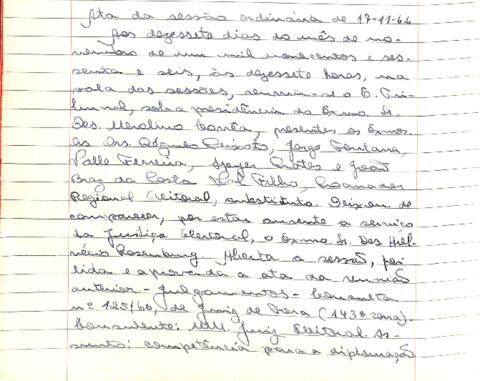 Ata da sessão ordinária de 17-11-66
Aos dezessete dias do mês de no-
vembro de um mil novecentos e ses-
senta e seis, às dezessete horas, na
sala das sessões, reuniu-se o E. Tri-
bunal, sob a presidência do Exmo. Sr.
Des. Merolino Corrêa, presentes os Exmos.
Srs. Drs. Régulo Peixoto, Jorge Fontana,
Valle Ferreira, Côrtes e João
Braz da Costa Val Filho, Procurador
Regional Eleitoral, substituto. Deixou de
comparecer, por estar ausente a serviço
da Justiça Eleitoral, o Exmo. Sr. Des. Hell
Rosemburg. Aberta a sessão, foi
lida e aprovada a ata da reunião
anterior - Julgamentos - Consulta
nº 125/66, de Juiz de Fora (143ª zona).
Consulente: MM. Juiz Eleitoral. As-
sunto: competência para a diplomação